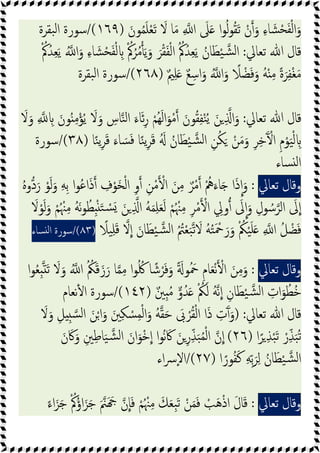 وَالْفَحْشَاءِ وَأَن تَقُولُوا عَلَى اللَّهِ مَا لَا تَعْلَمُونَ (١٦٩)/سورة البقرة
قال الله تعالي: الشَّيْطَانُ يَعِدُكُمُ الْفَقْرَ وَيَأْمُرُكُم بِالْفَحْشَاءِ وَاللَّهُ يَعِدُكُم
مَّغْفِرَةً مِّنْهُ وَفَضْلًا وَاللَّهُ وَاسِعٌ عَلِيمٌ (٢٦٨)/سورة البقرة
قال الله تعالي: وَالَّذِينَ يُنفِقُونَ أَمْوَالَهُمْ رِئَاءَ النَّاسِ وَلَا يُؤْمِنُونَ بِاللَّهِ وَلَا
بِالْيَوْمِ الْآخِرِ وَمَن يَكُنِ الشَّيْطَانُ لَهُ قَرِينًا فَسَاءَ قَرِينًا (٣٨)/سورة
النساء
وقال تعالي : وَإِذَا جَاءَهُمْ أَمْرٌ مِّنَ الْأَمْنِ أَوِ الْخَوْفِ أَذَاعُوا بِهِ وَلَوْ رَدُّوهُ
إِلَى الرَّسُولِ وَإِلَى أُولِي الْأَمْرِ مِنْهُمْ لَعَلِمَهُ الَّذِينَ يَسْتَنبِطُونَهُ مِنْهُمْ وَلَوْلَا
فَضْلُ اللَّهِ عَلَيْكُمْ وَرَحْمَتُهُ لَاتَّبَعْتُمُ الشَّيْطَانَ إِلَّا قَلِيلًا (٨٣)/سورة النساء
وقال تعالي : وَمِنَ الْأَنْعَامِ حَمُولَةً وَفَرْشًا كُلُوا مِمَّا رَزَقَكُمُ اللَّهُ وَلَا تَتَّبِعُوا
خُطُوَاتِ الشَّيْطَانِ إِنَّهُ لَكُمْ عَدُوٌّ مُّبِينٌ (١٤٢)/سورة الأنعام
قال الله تعالي: (وَآتِ ذَا الْقُرْبَى حَقَّهُ وَالْمِسْكِينَ وَابْنَ السَّبِيلِ وَلَا
تُبَذِّرْ تَبْذِيرًا (٢٦) إِنَّ الْمُبَذِّرِينَ كَانُوا إِخْوَانَ الشَّيَاطِينِ وَكَانَ
الشَّيْطَانُ لِرَبِّهِ كَفُورًا (٢٧)/الإسراء
وقال تعالي : قَالَ اذْهَبْ فَمَن تَبِعَكَ مِنْهُمْ فَإِنَّ جَهَنَّمَ جَزَاؤُكُمْ جَزَاءً